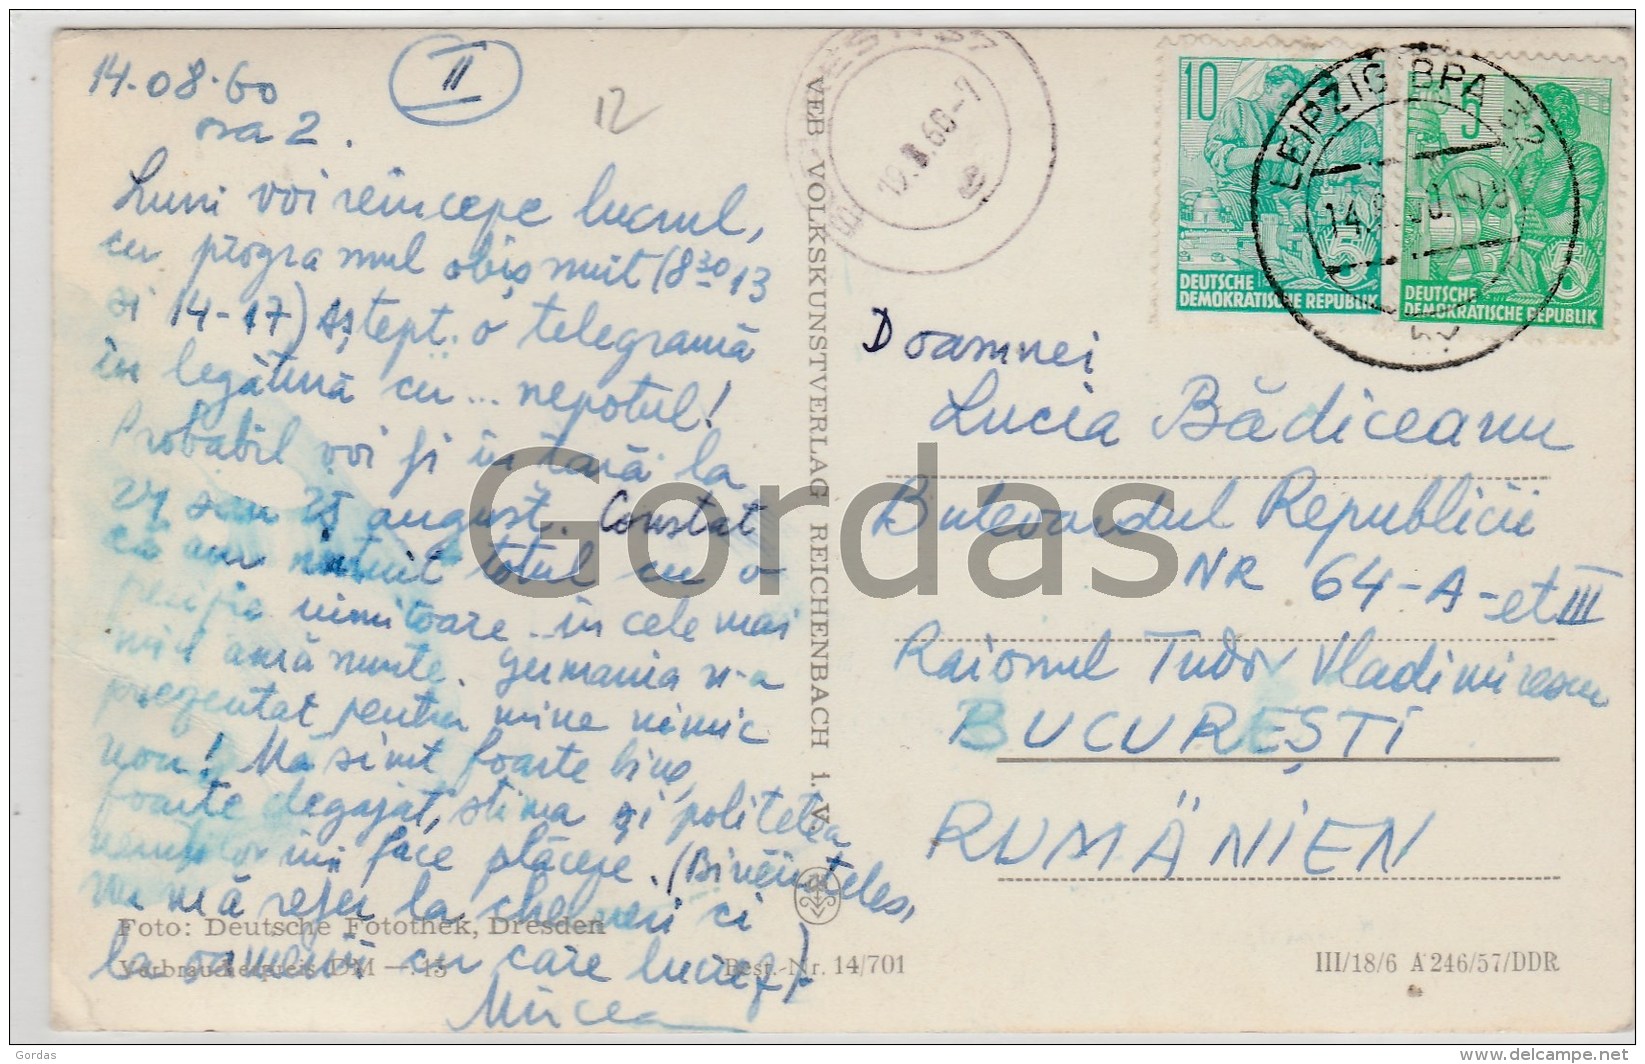 14.08.60
ora 2.
II
12
Luni voi reîncepe lucrul,
cu programul obișnuit (8 30 13
si 14-17) Aștept o telegramă
în legătură cu... nepotul!
Probabil voi fi în țară la
24 sau 25 august. Constat
că am intuit totul cu o
precizie uimitoare în cele mai
mici amănunte. Germania n-a
prezentat pentru mine nimic
nou! Ma simt foarte bine,
foarte degajat, stima și politetea
nemților îmi face plăcere. (Bineînteles,
nu mă refer la chelneri ci
la oamenii cu care lucrez).
Mircea
Foto: Deutsche Fotothek, Dresden
Verbraucherpreis DM —.15
Best.-Nr. 14/701
VEB VOLKSKUNSTVERLAG REICHENBACH I. V.
19.8.60-7
10
DEUTSCHE
DEMOKRATISCHE REPUBLIK
5
DEUTSCHE
DEMOKRATISCHE REPUBLIK
LEIPZIG BPA 32
Doamnei
Lucia Bădiceanu
Bulevardul Republicii
NR 64-A-et III
Raionul Tudor Vladimirescu
BUCUREȘTI
RUMÄNIEN
III/18/6 A 246/57/DDR
Gordas
Gordas
www.delcampe.net